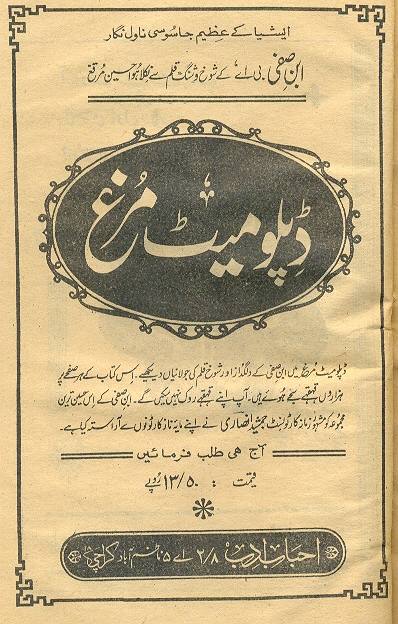 ایشیا کے عظیم جاسوسی ناول نگار
ابن صفی بی۔ اے کے شوخ و شنگ قلم سے نکلا ہوا حسین مرقع
ڈپلومیٹ مرغ
ڈپلومیٹ مرغ میں ابن صفی کے دلگداز اور شوخ قلم کی جولانیاں دیکھیے۔ اس کتاب کے ہر صفحے پر
ہزاروں قہقہے سجے ہوئے ہیں۔ آپ اپنے قہقہے روک نہیں سکیں گے۔ ابن صفی کے اس حسین ترین
مجموعہ کو مشہور زمانہ کارٹونسٹ جمشید انصاری نے اپنے مایہ ناز کارٹونوں سے آراستہ کیا ہے۔
آج ھی طلب فرمائیں
قیمت : ۱۳/۵۰ روپے
اخبار ادب ۲/۸ اے ۵ ناظم آباد کراچی